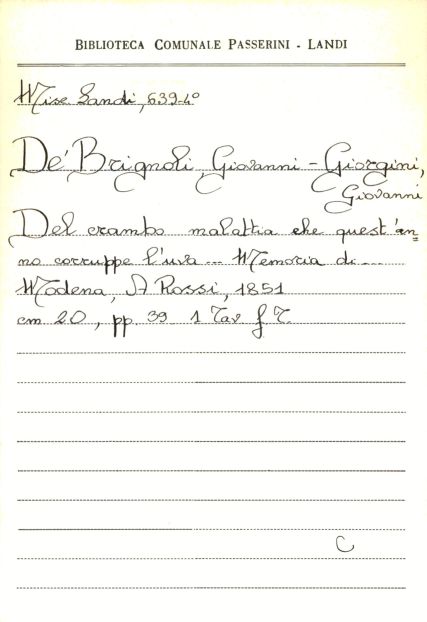 BIBLIOTECA COMUNALE PASSERINI - LANDI
Misc Landi, 639-4°
De' Brignoli, Giovanni - Giorgini,
Giovanni
Del crambo malattia che quest'an=
no corruppe l'uva... Memoria di...
Modena, A Rossi, 1851
cm 20, pp. 39 1 Tav f T.
C